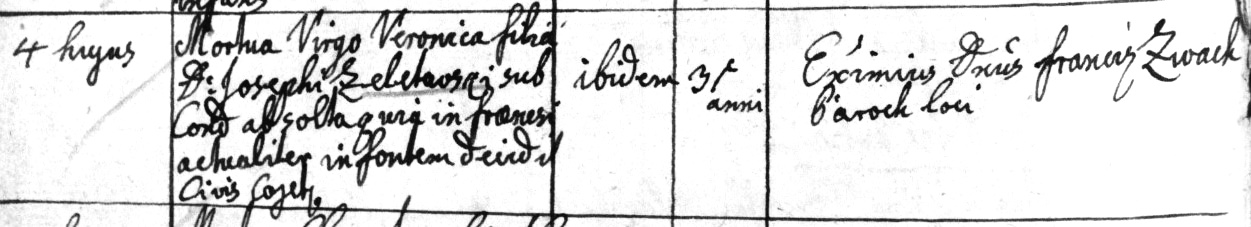 4 hujus
Mortua Virgo Veronica filia
D: Josephi Zeletavsqi sub
Cond absolta quia in frenesi
actualiter in fontem decidit
Civis Coseh.
ibidem
31
anni
Eximius Dnus Francis Zwach
Paroch loci